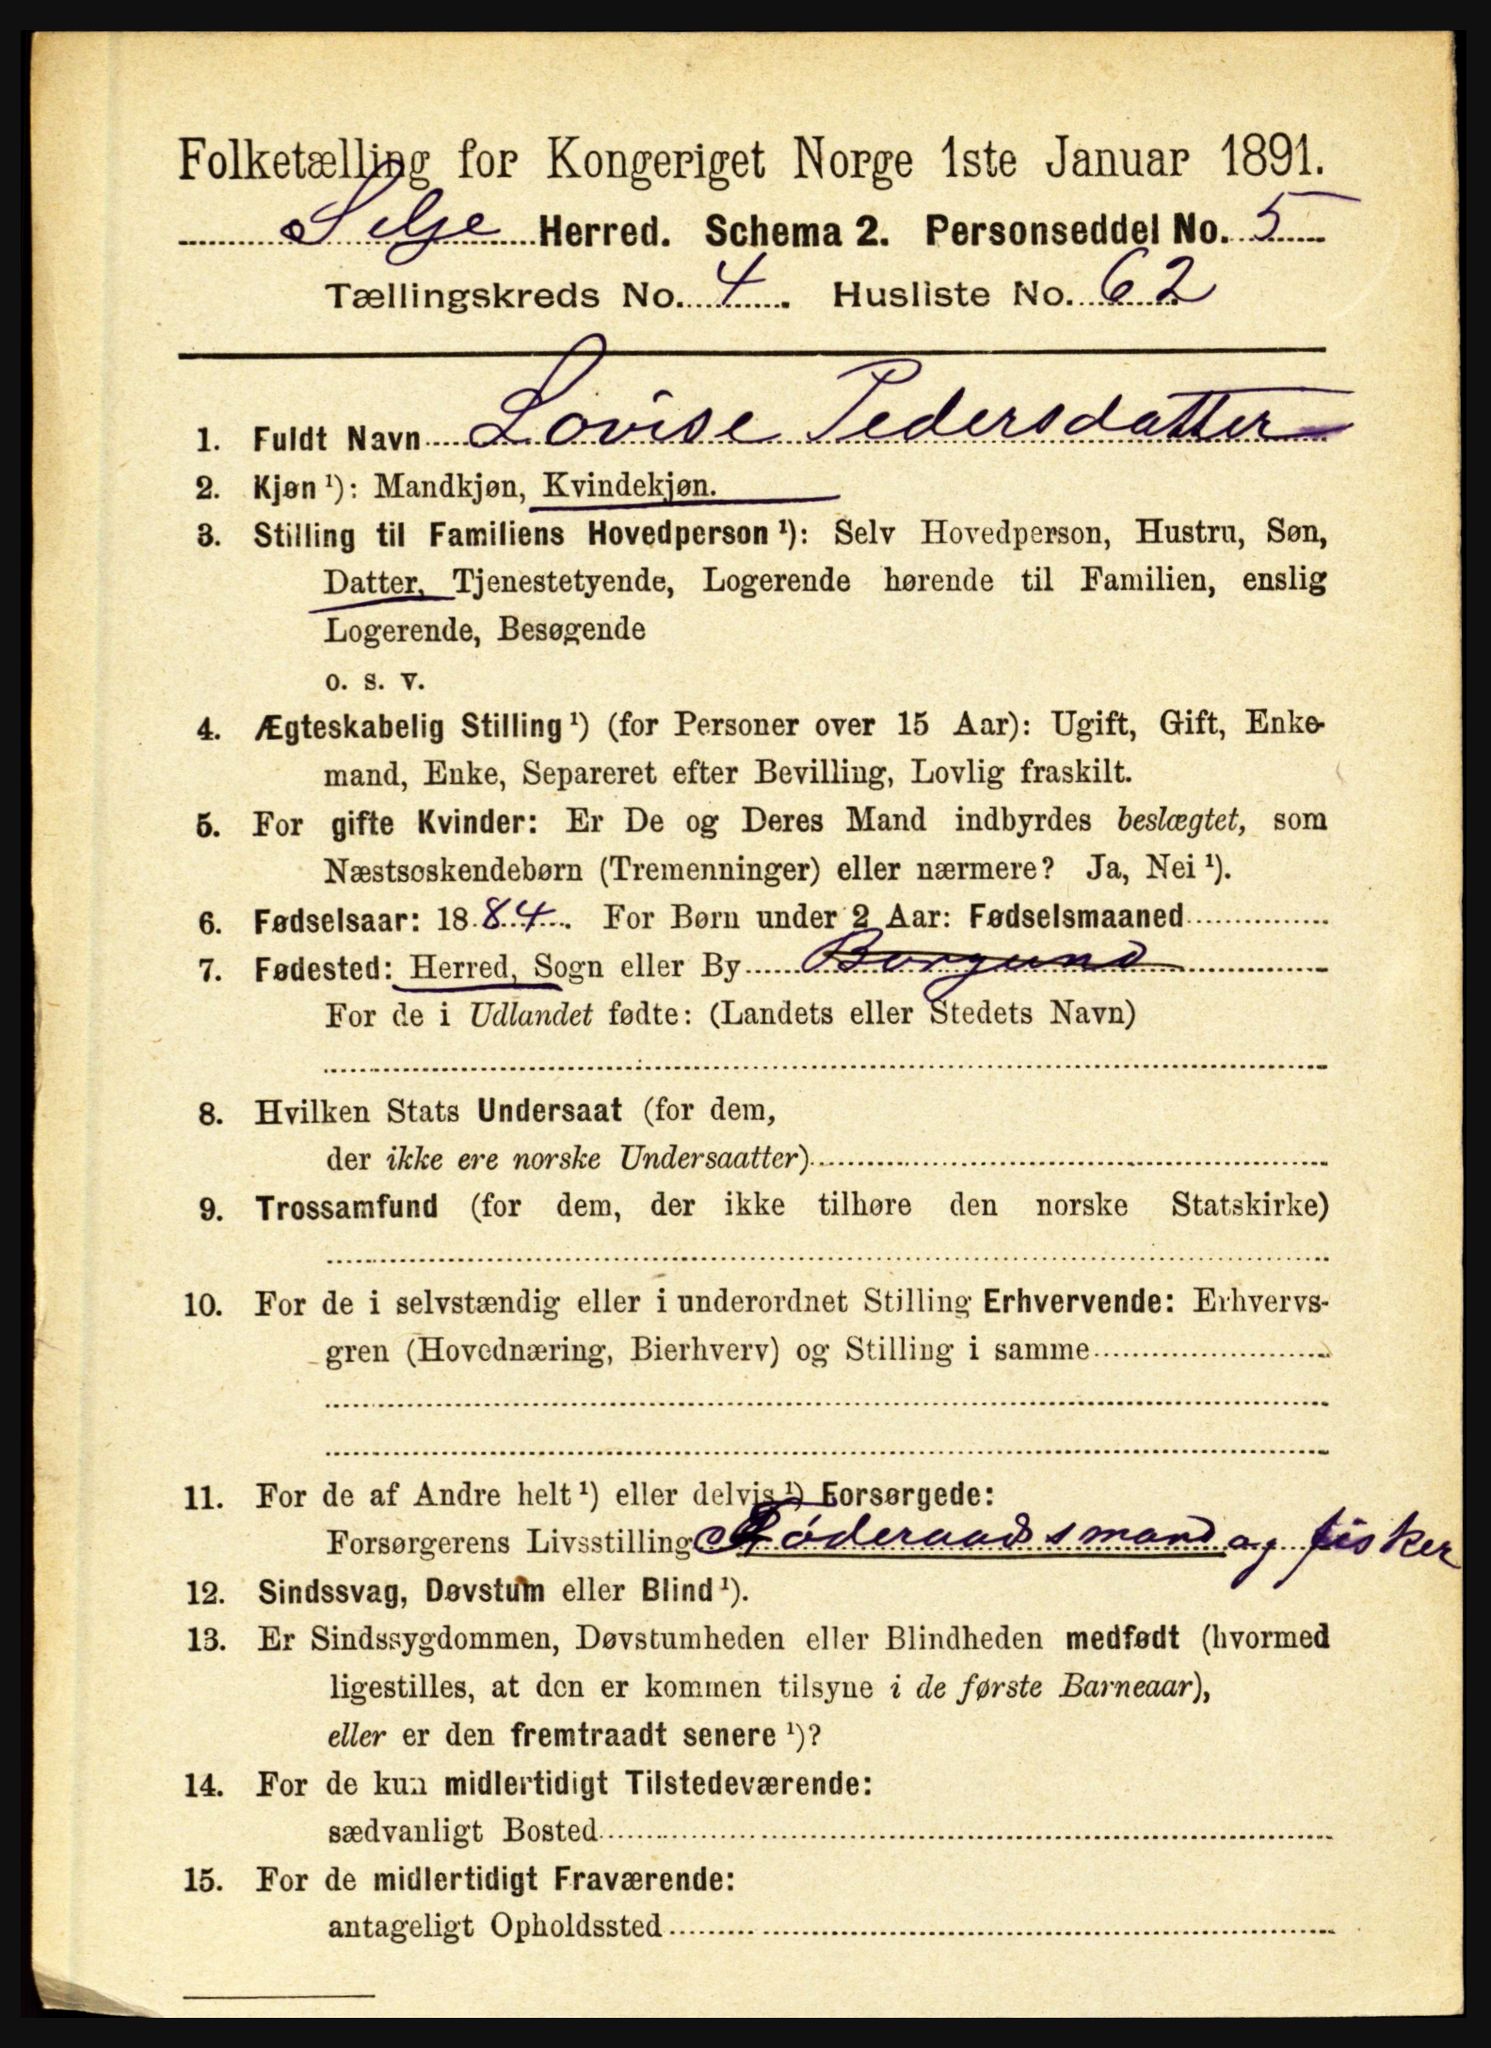 Folketælling for Kongeriget Norge 1ste Januar 1891.
Selje Herred. Schema 2. Personseddel No. 5
Tællingskreds No. 4. Husliste No. 62
1. Fuldt Navn Lovise Pedersdatter
2. Kjøn ¹): Mandkjøn, Kvindekjøn.
3. Stilling til Familiens Hovedperson ¹): Selv Hovedperson, Hustru, Søn,
Datter, Tjenestetyende, Logerende hørende til Familien, enslig
Logerende, Besøgende
o. s. v.
4. Ægteskabelig Stilling ¹) (for Personer over 15 Aar): Ugift, Gift, Enke-
mand, Enke, Separeret efter Bevilling, Lovlig fraskilt.
5. For gifte Kvinder: Er De og Deres Mand indbyrdes beslægtet, som
Næstsøskendebørn (Tremenninger) eller nærmere? Ja, Nei ¹).
6. Fødselsaar: 1884. For Børn under 2 Aar: Fødselsmaaned
7. Fødested: Herred, Sogn eller By Borgund
For de i Udlandet fødte: (Landets eller Stedets Navn)
8. Hvilken Stats Undersaat (for dem,
der ikke ere norske Undersaatter)
9. Trossamfund (for dem, der ikke tilhøre den norske Statskirke)
10. For de i selvstændig eller i underordnet Stilling Erhvervende: Erhvervs-
gren (Hovednæring, Bierhverv) og Stilling i samme
11. For de af Andre helt ¹) eller delvis ¹) Forsørgede:
Forsørgerens Livsstilling Føderaadsmand og fisker
12. Sindssvag, Døvstum eller Blind ¹).
13. Er Sindssygdommen, Døvstumheden eller Blindheden medfødt (hvormed
ligestilles, at den er kommen tilsyne i de første Barneaar),
eller er den fremtraadt senere ¹)?
14. For de kun midlertidigt Tilstedeværende:
sædvanligt Bosted
15. For de midlertidigt Fraværende:
antageligt Opholdssted